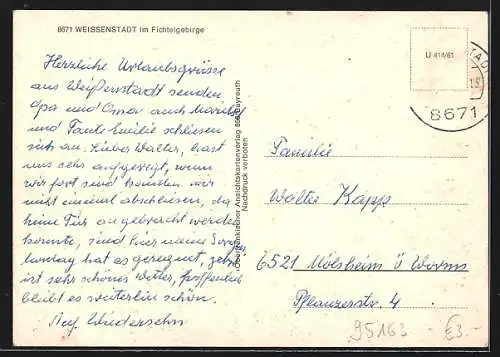 8671 WEISSENSTADT im Fichtelgebirge
Herzliche Urlaubsgrüsse
aus Weißenstadt senden
Opa und Oma auch
und Tante Emilie schliesen
sich an. Lieber Walter, hast
uns sehr aufgeregt, wenn
wir fort sind konnten wir
nicht einmal abschliesen, da
keine Tür angebracht werden
konnte, sind hier
hat es geregnet,
ist sehr schönes Wetter, hoffentlich
bleibt es weiterhin schön.
Auf Wiedersehn
Oberfränkischer Ansichtskartenverlag Bayreuth
Nachdruck verboten
U 414/81
8671
Familie
Walter Kapp
6521 Mölsheim ü Worms
Pflanzerstr. 4
95163 - €3.-